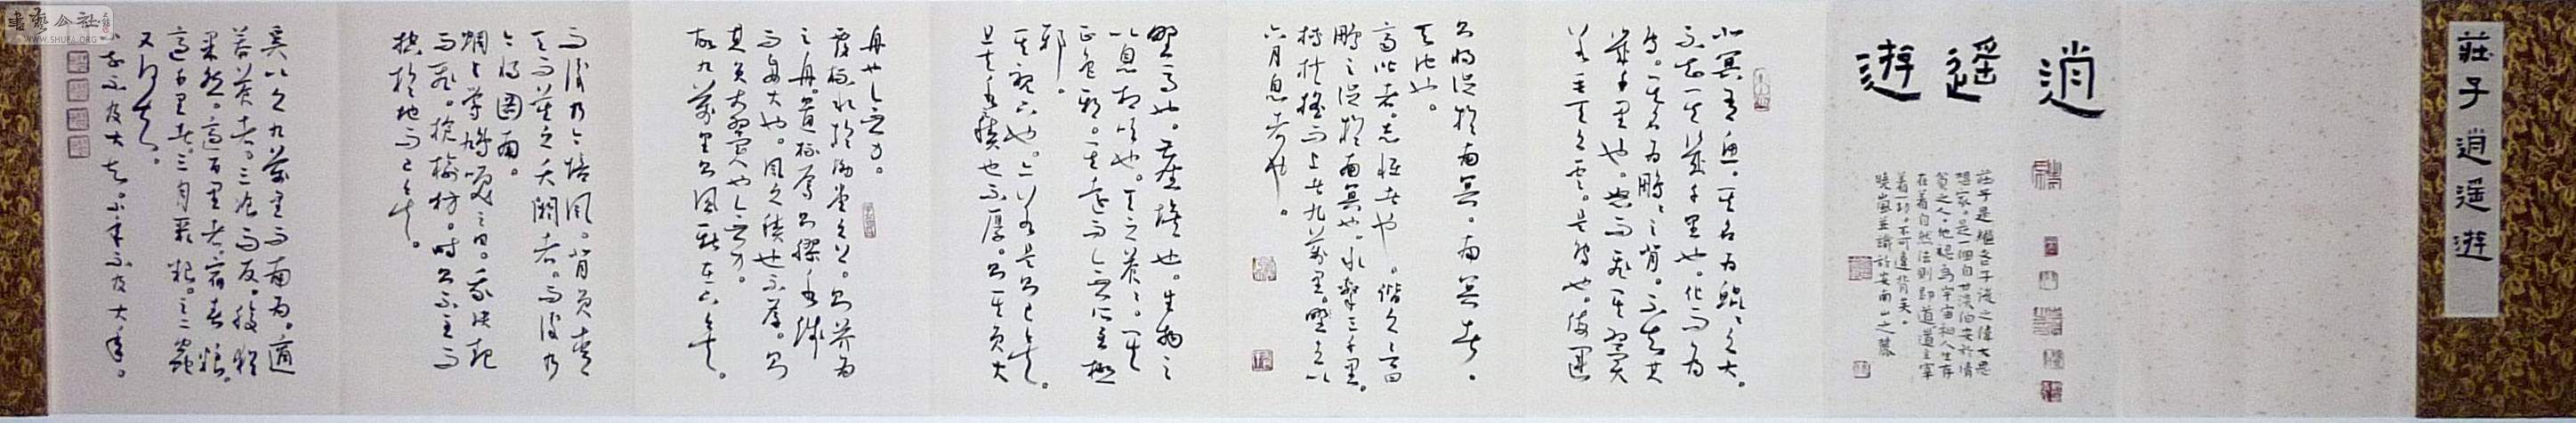 莊子逍遙遊
逍遙遊
莊子是繼老子後之偉大思
想家。是一個自甘淡泊安於清
貧之人。他認為宇宙和人生存
在着自然法則即道,道主宰
着一切,不可違背矣。
曉嵐並識於安南山之麓
北冥有魚。其名为鯤。鯤之大。
不知其幾千里也。化而为
鸟。其名为鵬。鵬之背。不知其
幾千里也。怒而飛。其翼
若垂天之雲。是鸟也。海運
則將徙於南冥。南冥者。
天池也。
齊諧者。志怪者也。諧之言曰
鵬之徙於南冥也。水擊三千里。
摶扶搖而上者九萬里。去以
六月息者也。
野馬也。塵埃也。生物之
以息相吹也。天之蒼蒼。其
正色邪。其遠而無所至極
邪。
其視下也。亦若是則已矣。
且夫水積也不厚。則其負大
舟也無力。
覆杯水於坳堂之上。則芥为
之舟。置杯焉則膠。水淺
而舟大也。風之積也不厚。則
其負大翼也無力。
故九萬里則風斯在下矣。
而後乃今培風。背負青
天而莫之夭閼者。而後乃
今將圖南。
蜩與學鳩笑之曰。我決起
而飛。搶榆枋。時則不至而
控於地而已矣。
奚以之九萬里而南为。適
莽蒼者。三飡而反。腹猶
果然。適百里者。宿舂糧。
適千里者。三月聚糧。之二蟲
又何知。
小知不及大知。小年不及大年。
書藝公社
WWW.SHUFA.ORG